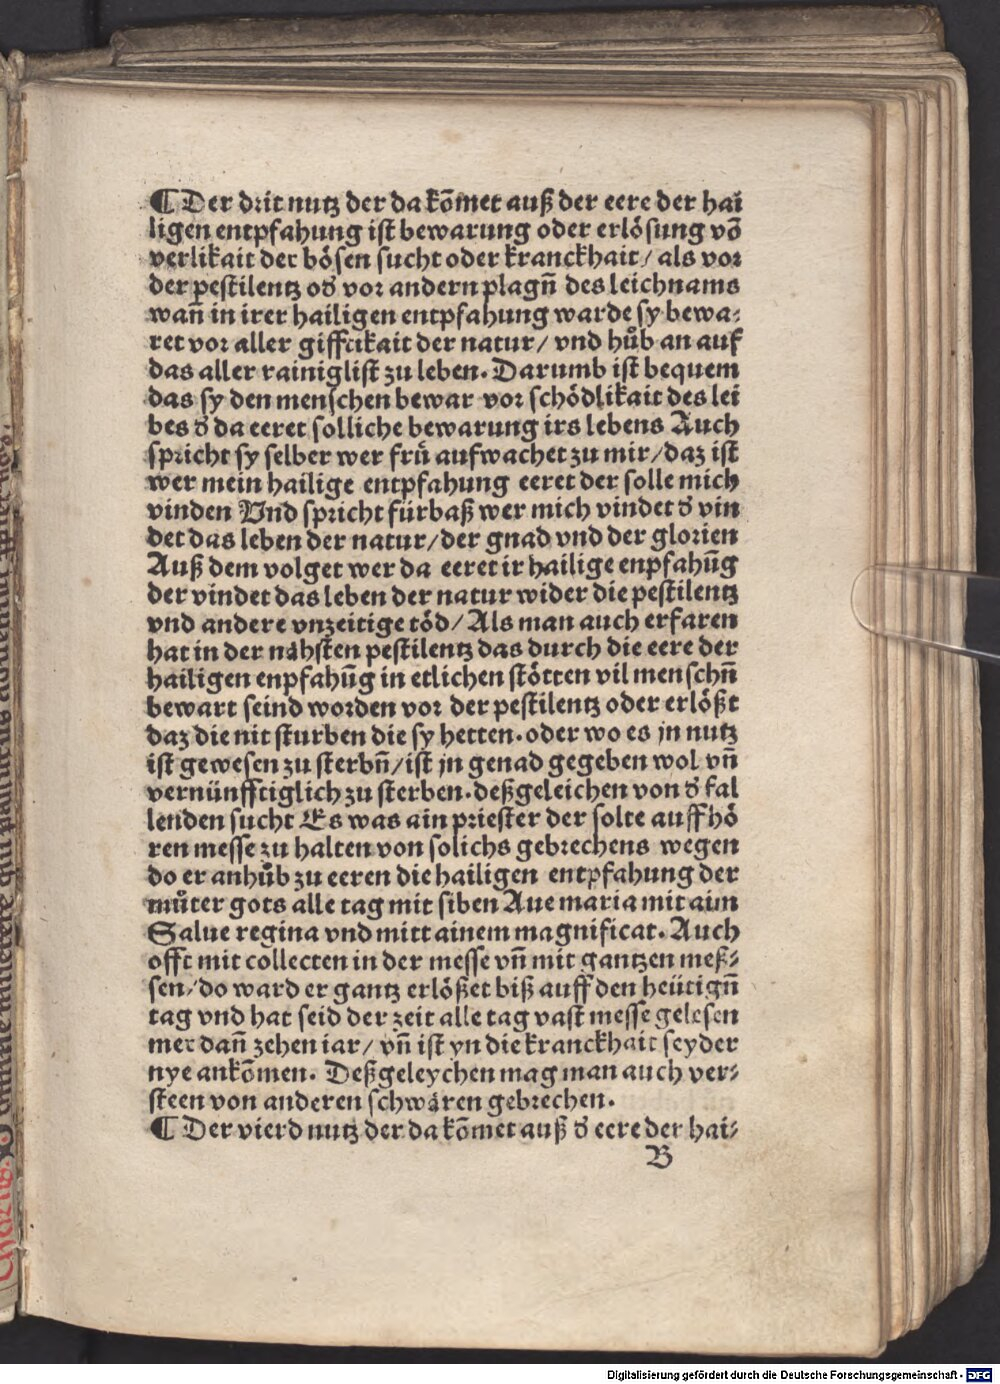 ¶ Der drit nutz der da kōmet auß der eere der hai
ligen entpfahung ist bewarung oder erlösung võ
verlikait der bösen sucht oder kranckhait/ als vor
der pestilentz oď vor andern plagñ des leichnams
wañ in irer hailigen entpfahung warde sy bewa⸗
ret vor aller gifftikait der natur/ vnd hůb an auf
das aller rainiglist zu leben. Darumb ist bequem
das sy den menschen bewar vor schödlikait des lei
bes ď da eeret solliche bewarung irs lebens Auch
spricht sy selber wer frü aufwachet zu mir/daz ist
wer mein hailige entpfahung eeret der solle mich
vinden Vnd spricht fürbaß wer mich vindet ď vin
det das leben der natur/der gnad vnd der glorien
Auß dem volget wer da eeret ir hailige enpfahūg
der vindet das leben der natur wider die pestilentz
vnd andere vnzeitige töd/ Als man auch erfaren
hat in der nähsten pestilentz das durch die eere der
hailigen enpfahūg in etlichen stötten vil menschñ
bewart seind worden vor der pestilentz oder erlößt
daz die nit sturben die sy hetten. oder wo es jn nutz
ist gewesen zu sterbñ/ist jn genad gegeben wol vñ
vernünfftiglich zu sterben. deßgeleichen von ď fal
lenden sucht Es was ain priester der solte auffhö
ren messe zu halten von solichs gebrechens wegen
do er anhůb zu eeren die hailigen entpfahung der
můter gots alle tag mit siben Aue maria mit aim
Salue regina vnd mitt ainem magnificat. Auch
offt mit collecten in der messe vñ mit gantzen meß⸗
sen/do ward er gantz erlößet biß auff den heütigñ
tag vnd hat seid der zeit alle tag vast messe gelesen
mer dañ zehen iar/ vñ ist yn die kranckhait seyder
nye ankōmen. Deßgeleychen mag man auch ver⸗
steen von anderen schwären gebrechen.
¶ Der vierd nutz der da kōmet auß ď eere der hai⸗
B
Digitalisierung gefördert durch die Deutsche Forschungsgemeinschaft - DFG